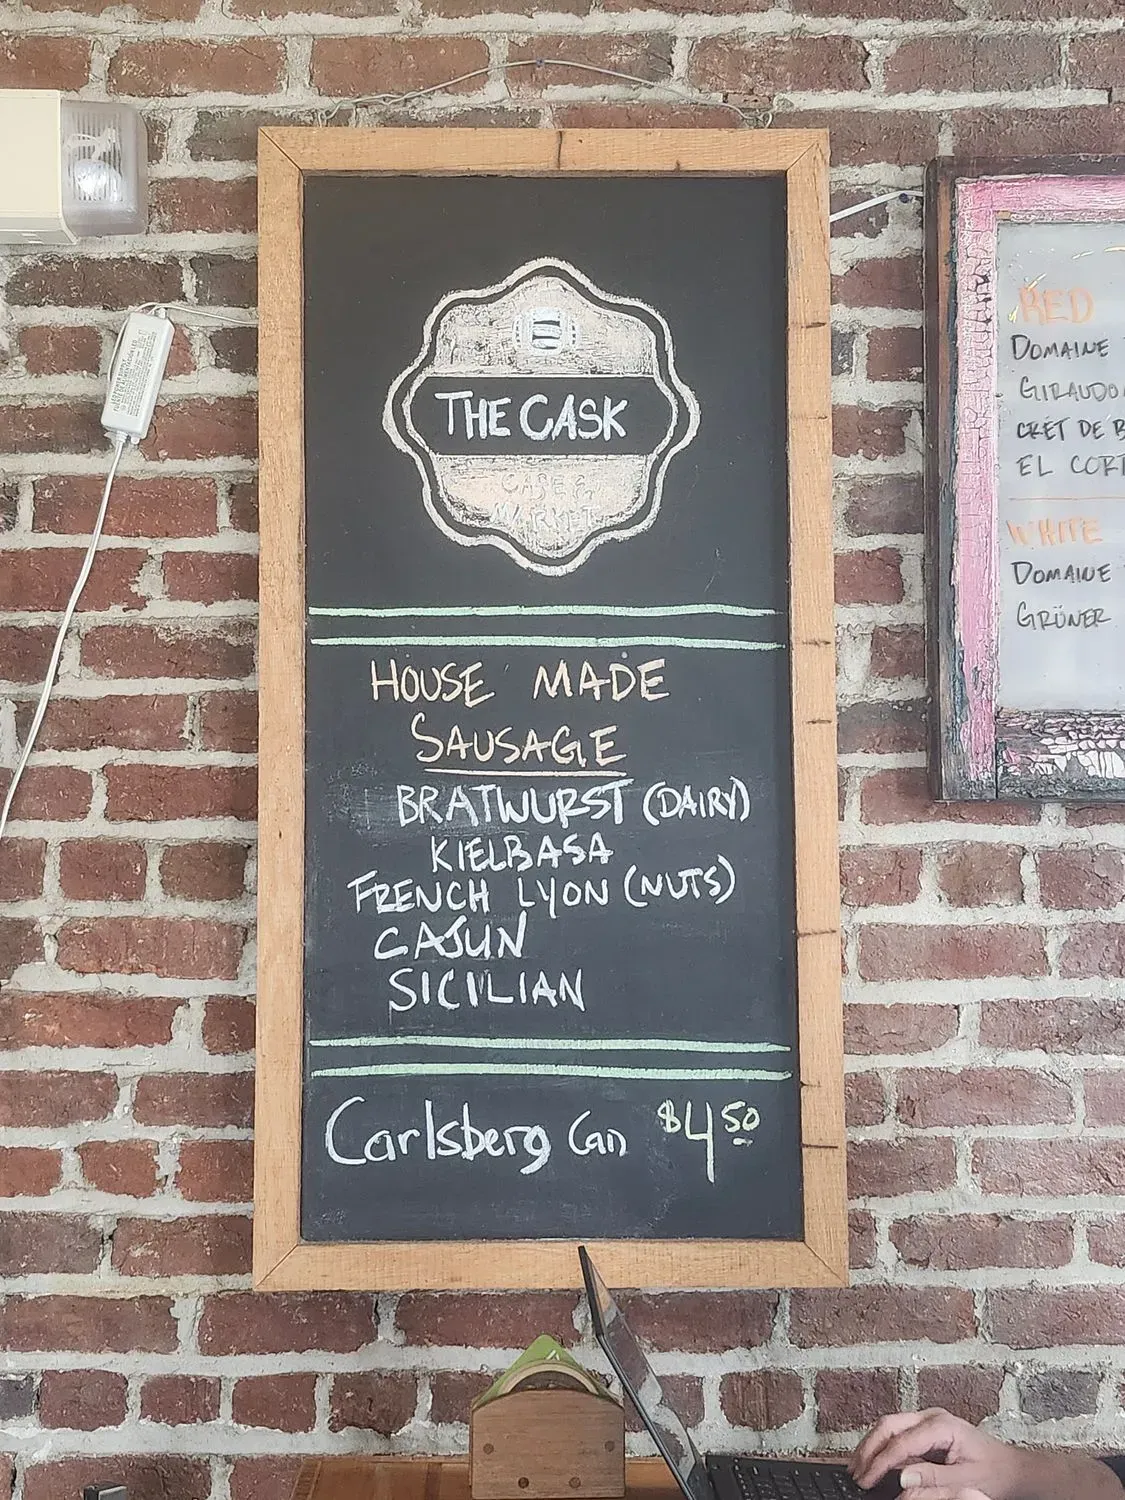 THE CASK
CAFE &
MARKET
HOUSE MADE
SAUSAGE
BRATWURST (DAIRY)
KIELBASA
FRENCH LYON (NUTS)
CAJUN
SICILIAN
Carlsberg Can $4.50
RED
DOMAINE
CRÉT DE
EL
WHITE
DOMAINE
GRÜNER